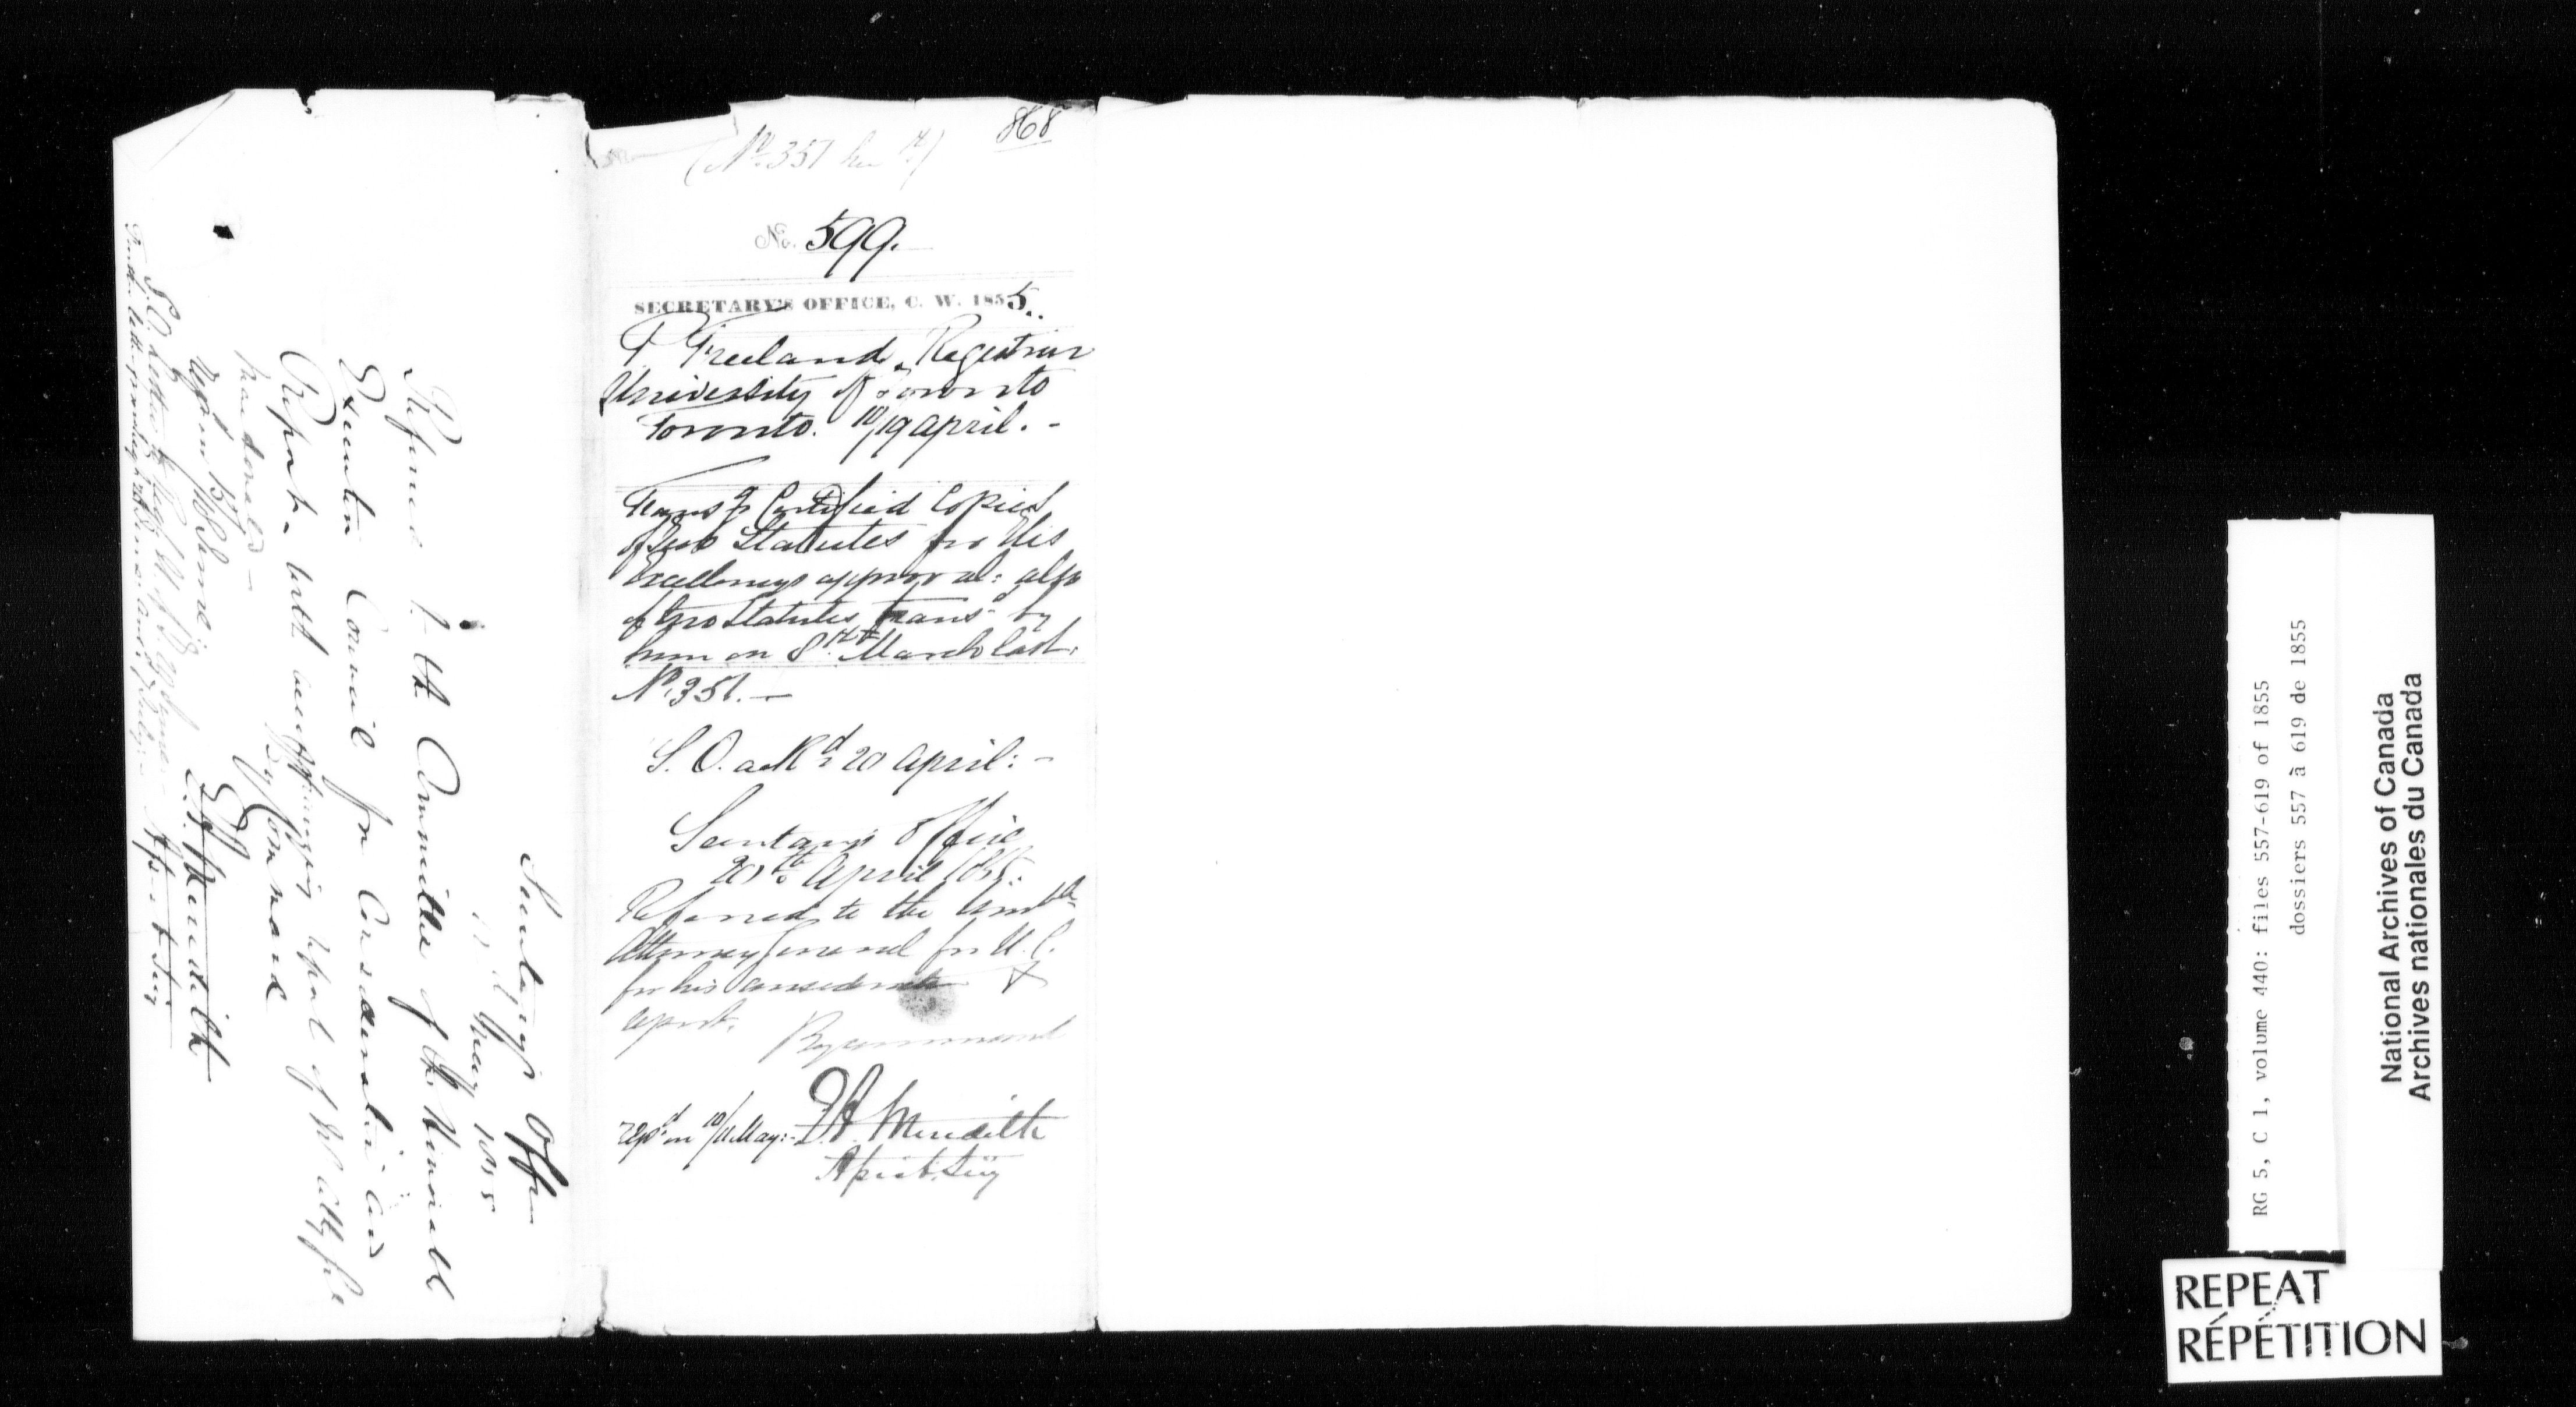 868
(No. 351 her 14)
No. 599.
SECRETARY'S OFFICE, C. W. 1855..
P. Freeland, Registrar
University of Toronto
Toronto. 18/19 april. -
Trans.g Certified Copies
of Statutes for His
Excellencys approval: also
of two Statutes trans.d by
him on 8th March last.
No. 351. —
S. O. ackd. 20 april: -
Secretary's Office
20th April 1855.
Referred to the Honble
Attorney General for U. C.
for his consideration &
report.
By command
E. A. Meredith
Assist. Secy
Repd. on 10/11 May:-
Secretary's Office
May 1855
Refered to the Committee of the Honorable
Executive Council for Consideration and
Report, with accompanying report of Mr Atty Genl
Macdonald —
By Command
E. A. Meredith
Assist Secy
RG 5, C 1, volume 440: files 557-619 of 1855
dossiers 557 à 619 de 1855
National Archives of Canada
Archives nationales du Canada
REPEAT
RÉPÉTITION